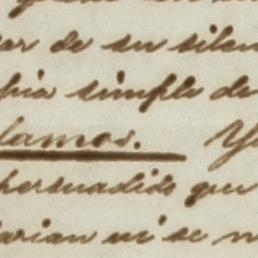 ar de su silen
pia simple de
lamos. Y
persuadido que
arian ni se n